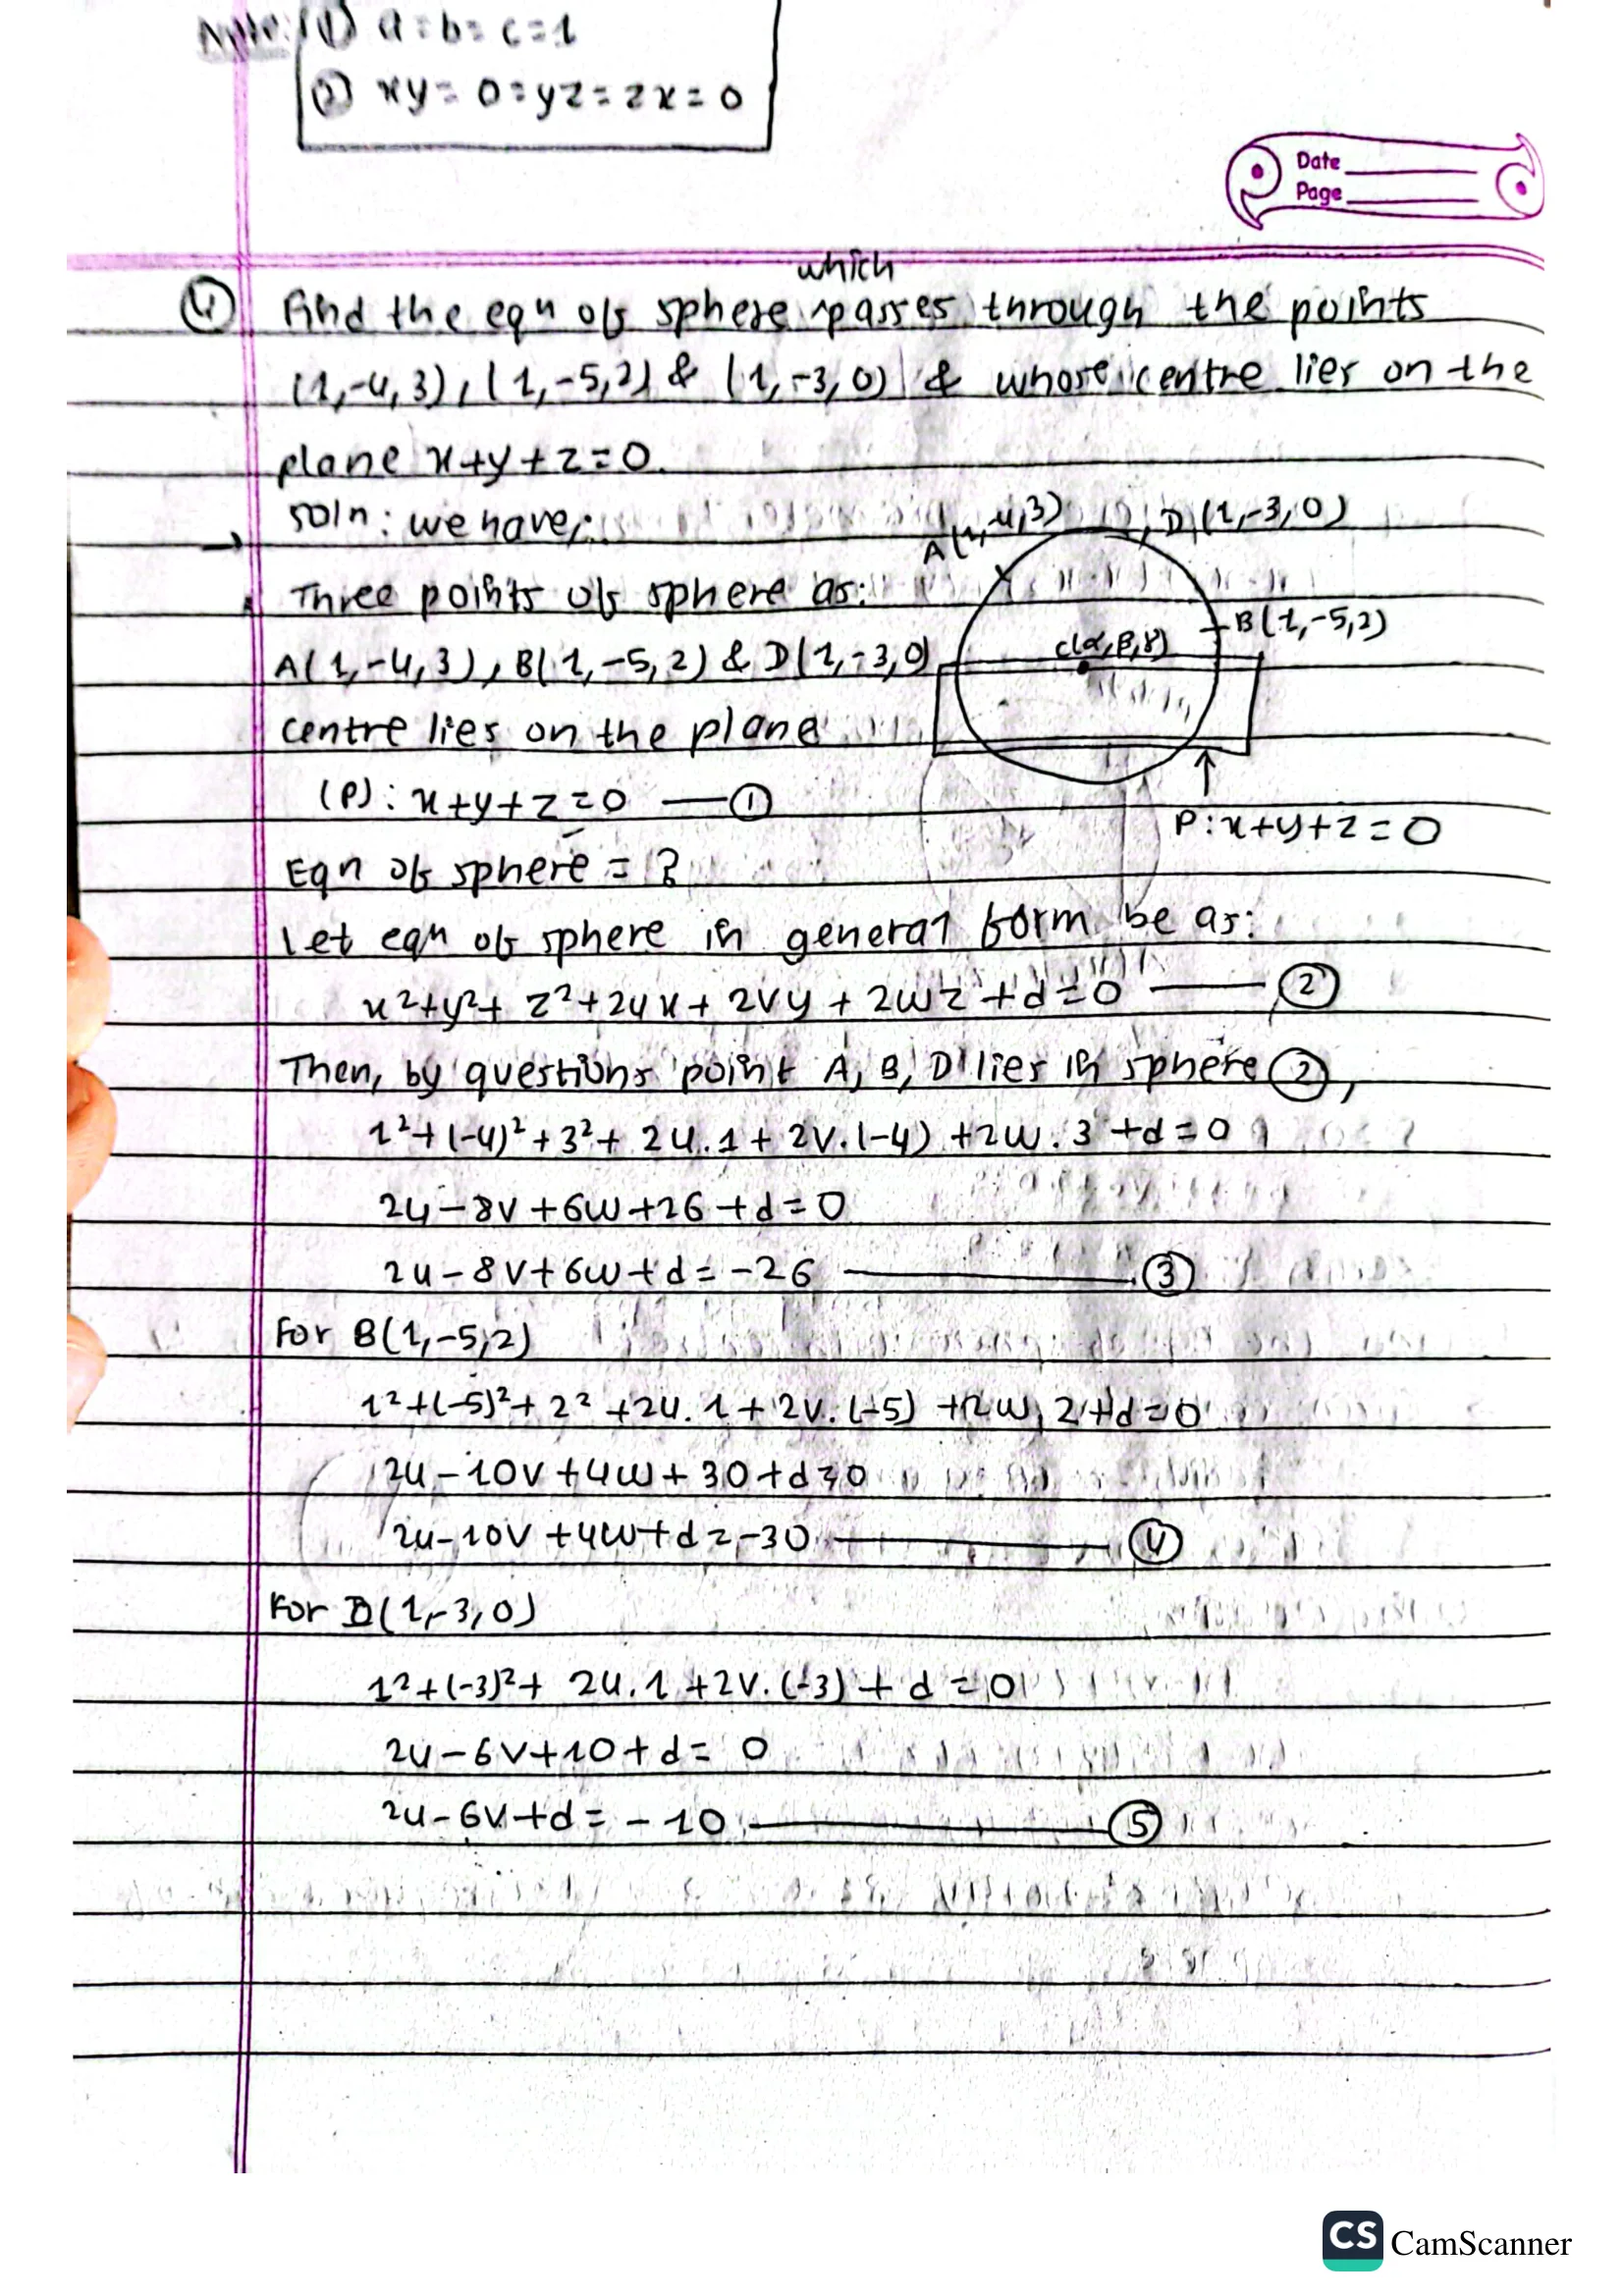 Note: (1) a = b = c = 1
(2) xy = 0 = yz = zx = 0
Date
Page
which
(4) Find the eqn of sphere ^ passes through the points
(1,-4,3), (1,-5,2) & (1,-3,0) & whose centre lies on the
plane x+y+z=0.
→ Soln: we have,
A(1,-4,3)
D(1,-3,0)
Three points of sphere as:
B(1,-5,2)
C(α,β,γ)
A(1,-4,3), B(1,-5,2) & D(1,-3,0)
centre lies on the plane
(P): x+y+z=0 — (1)
P: x+y+z=0
Eqn of sphere = ?
Let eqn of sphere in general form be as:
x²+y²+z²+2ux+2vy+2wz+d=0 — (2)
Then, by questions point A, B, D lies in sphere (2),
1²+(-4)²+3²+2u.1+2v.(-4)+2w.3+d=0
2u-8v+6w+26+d=0
2u-8v+6w+d=-26 — (3)
For B(1,-5,2)
1²+(-5)²+2²+2u.1+2v.(-5)+2w.2+d=0
2u-10v+4w+30+d=0
2u-10v+4w+d=-30 — (4)
For D(1,-3,0)
1²+(-3)²+2u.1+2v.(-3)+d=0
2u-6v+10+d=0
2u-6v+d=-10 — (5)
CS CamScanner